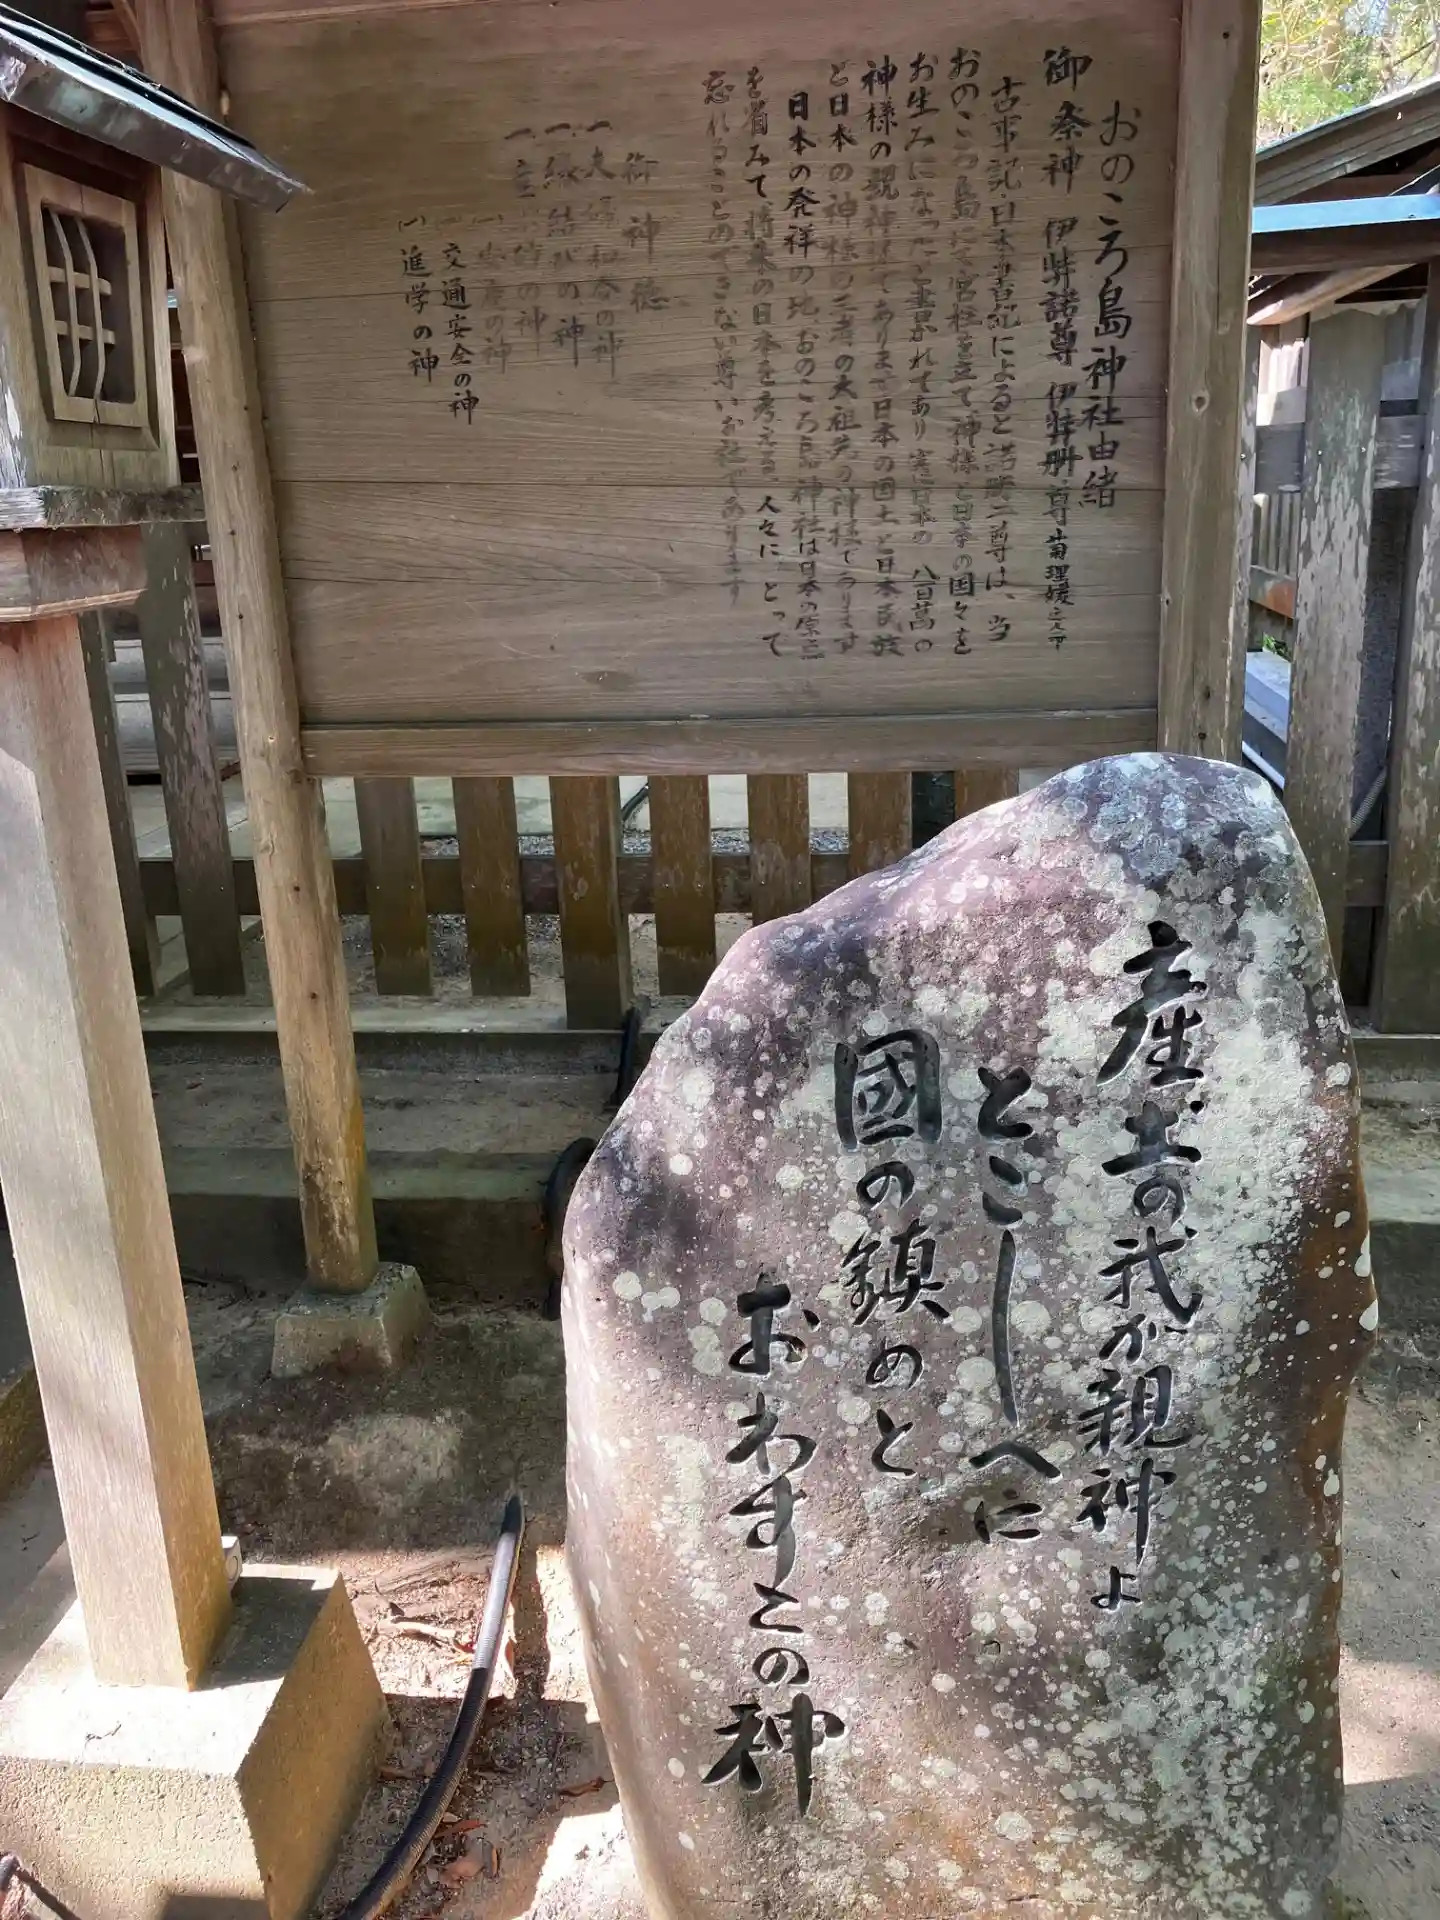 おのころ島神社由緒
御祭神 伊弉諾尊 伊弉冊尊 菊理媛之命
古事記・日本書紀によると諾冊二尊は、当
おのころ島にて宮柱を立て、神様と日本の国々を
お生みになったと書かれてあり実に日本の 八百萬の
神様の親神様でありまた日本の国土と日本民族
と日本の神様の三者の大祖先の神様であります
日本の発祥の地、おのころ島神社は日本の原点
を省みて将来の日本を考える、人々にとって
忘れることのできない尊いお社であります
御神徳
一、夫婦和合の神
一、縁結びの神
一、の神
一、安産の神
一 交通安全の神
一 進学の神
産土の我が親神よ
とこしへに
國の鎮めと
おわすこの神